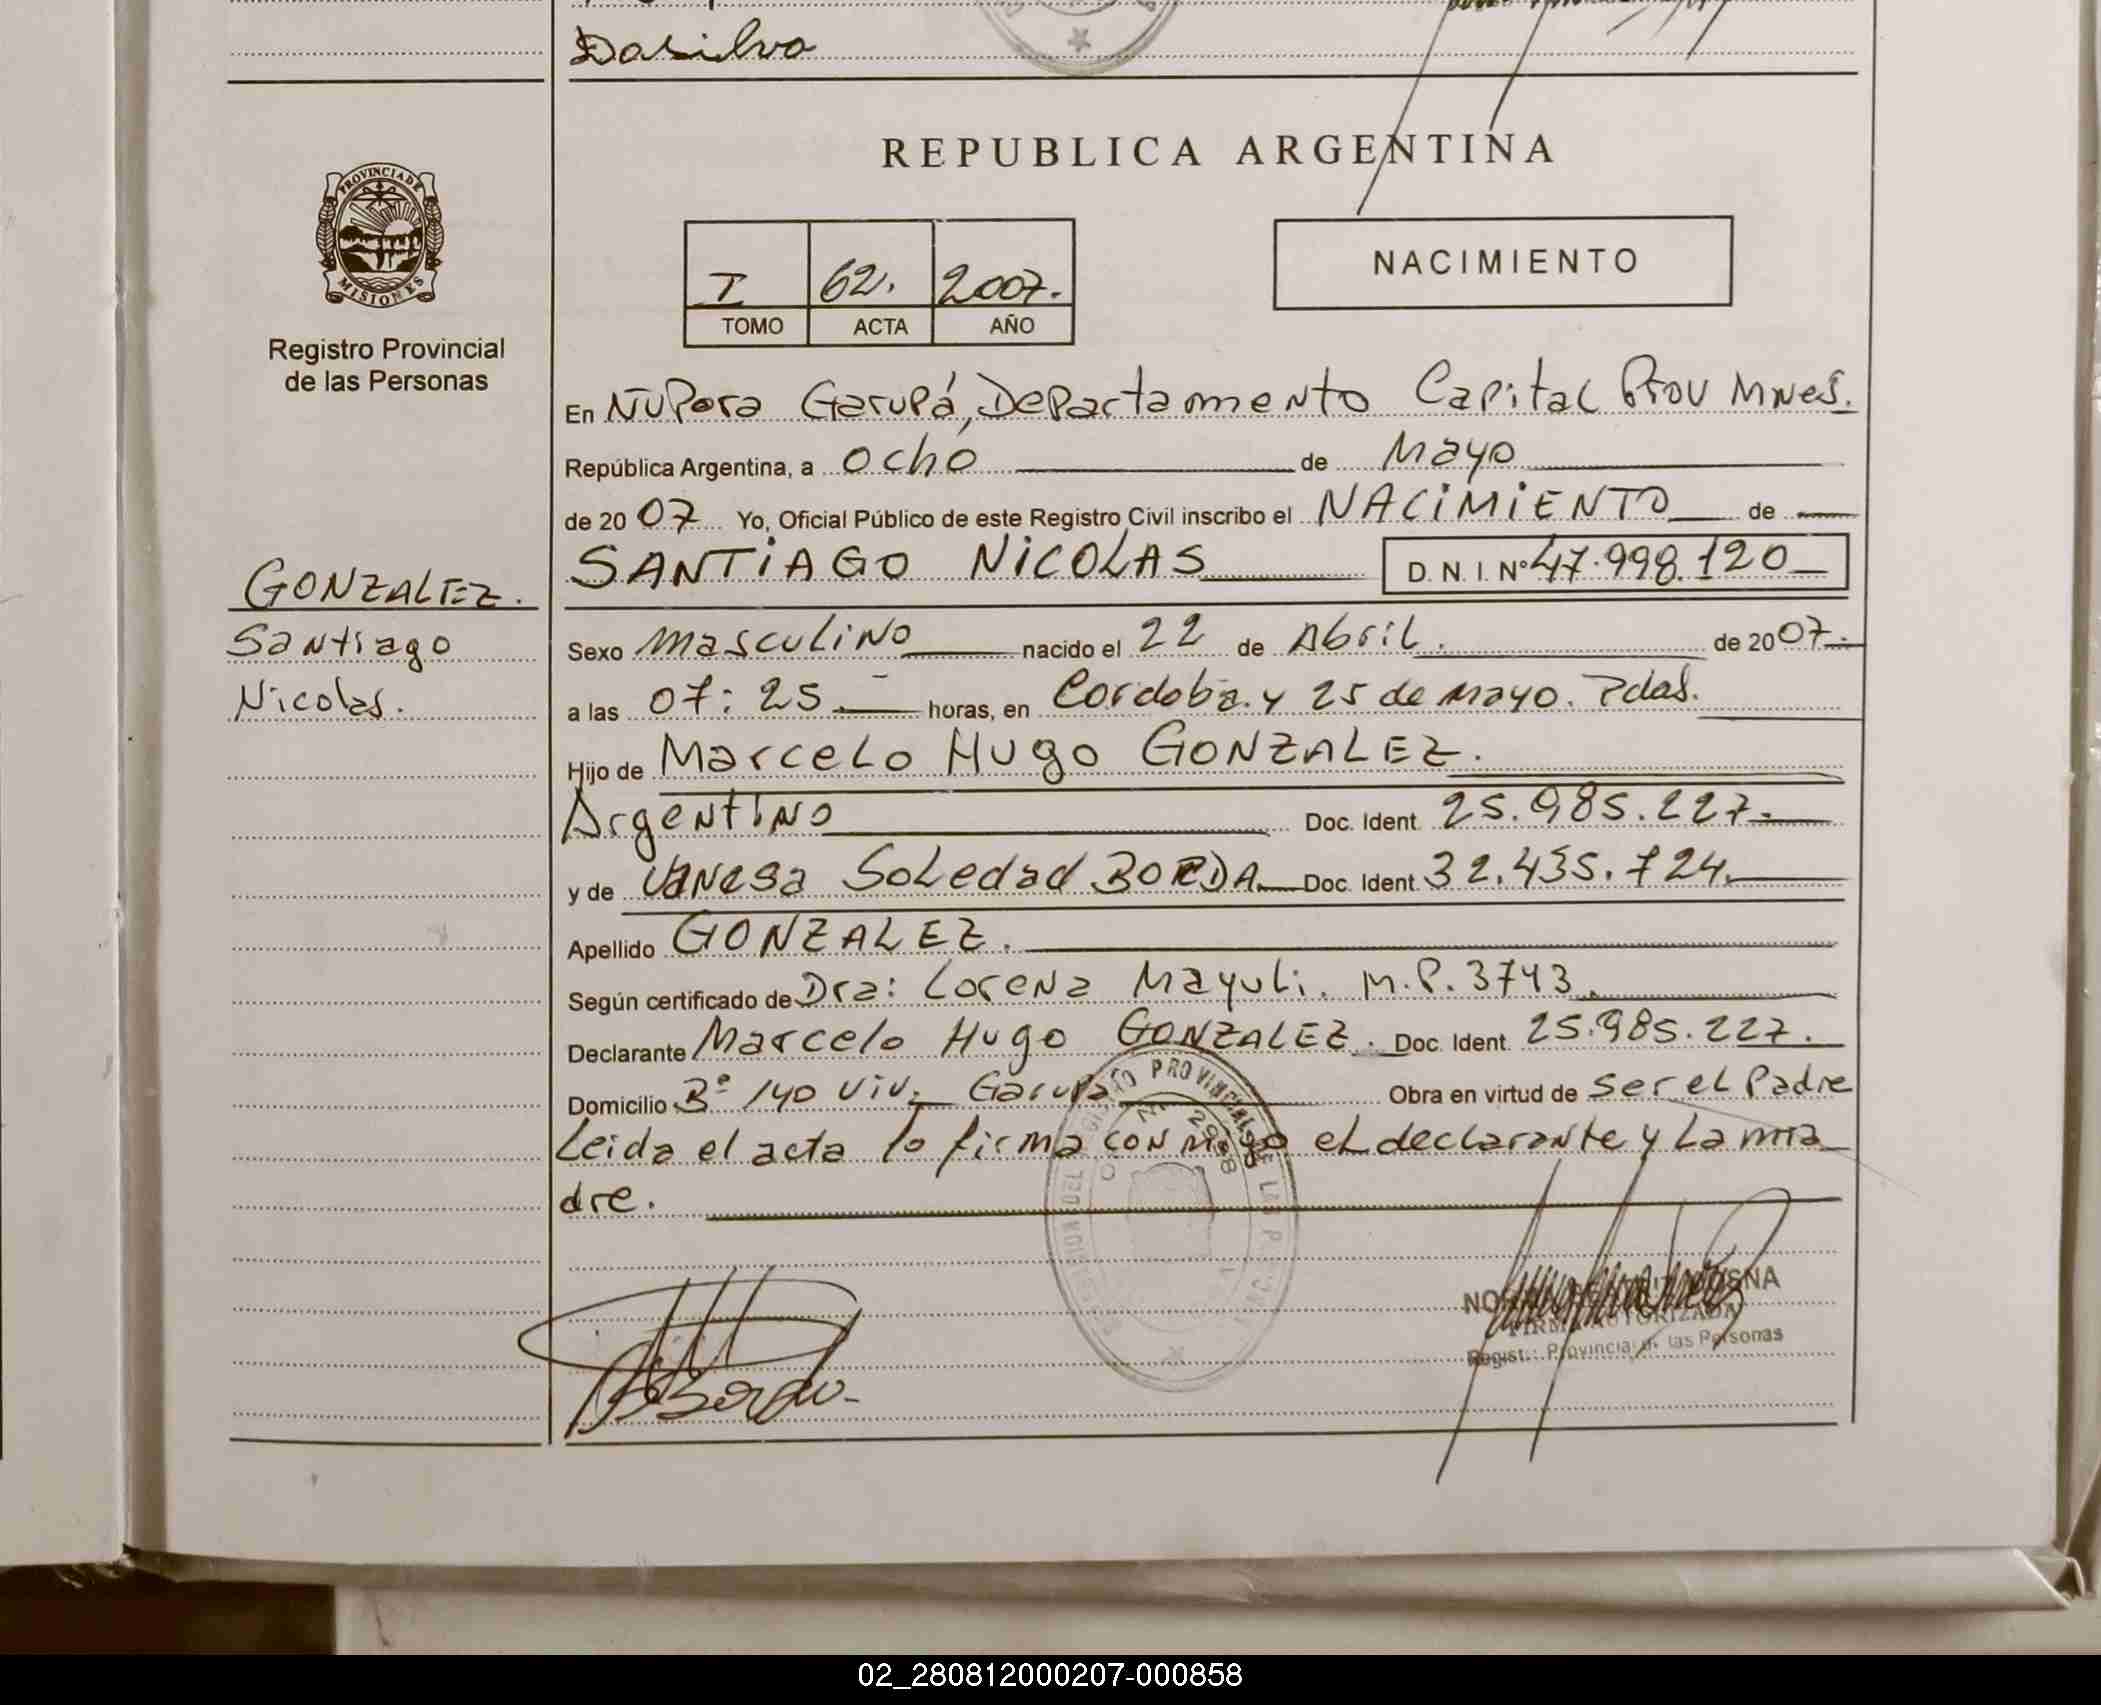 Dasilva
REPUBLICA ARGENTINA
PROVINCIA DE MISIONES
Registro Provincial
de las Personas
I 62. 2007.
TOMO ACTA AÑO
NACIMIENTO
En ÑuPora Garupá, Departamento Capital Prov Mnes.
República Argentina, a ocho de Mayo
de 20 07 Yo, Oficial Público de este Registro Civil inscribo el NACIMIENTO de
SANTIAGO NICOLAS D. N. I. Nº 47.998.120
GONZALEZ.
Santiago
Nicolas.
Sexo masculino nacido el 22 de Abril. de 20 07.
a las 07:25 horas, en Cordoba y 25 de mayo. Pdas.
Hijo de Marcelo Hugo GONZALEZ.
Argentino Doc. Ident. 25.985.227.
y de Vanesa Soledad BORDA Doc. Ident. 32.435.724.
Apellido GONZALEZ.
Según certificado de Dra: Lorena Mayuli. M.P. 3743.
Declarante Marcelo Hugo GONZALEZ. Doc. Ident. 25.985.227.
Domicilio Bº 140 Viv. Garupa Obra en virtud de ser el Padre
Leida el acta lo firma con migo el declarante y la ma
dre.
FIRMA AUTORIZADA
Regist. Provincial de las Personas
02_280812000207-000858